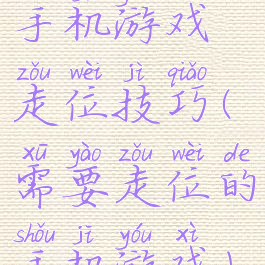 手机游戏
zǒu wèi jì qiǎo
走位技巧(
xū yào zǒu wèi de
需要走位的
shǒu jī yóu xì
手机游戏)